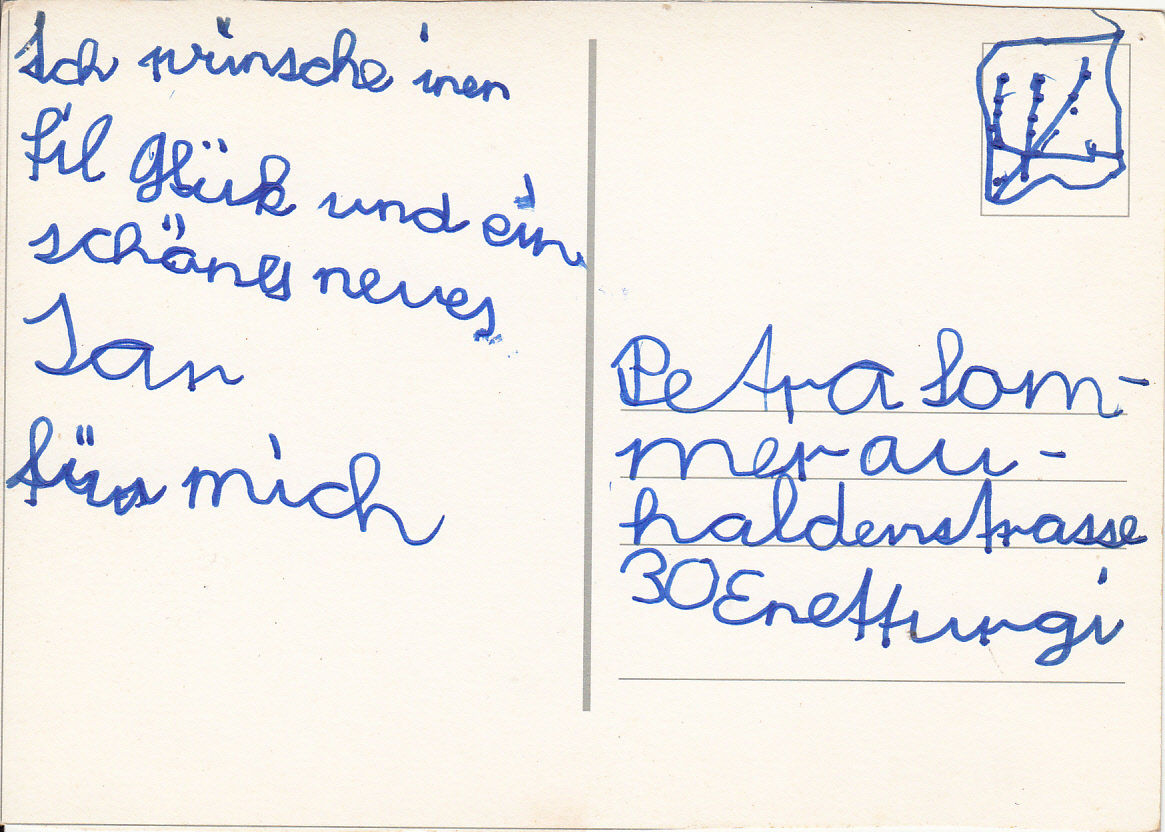 Ich wünsche inen
fil Glük und ein
schönes neues
Jar
fürs mich
Petra Som-
merau-
haldenstrasse
30 Enetturgi